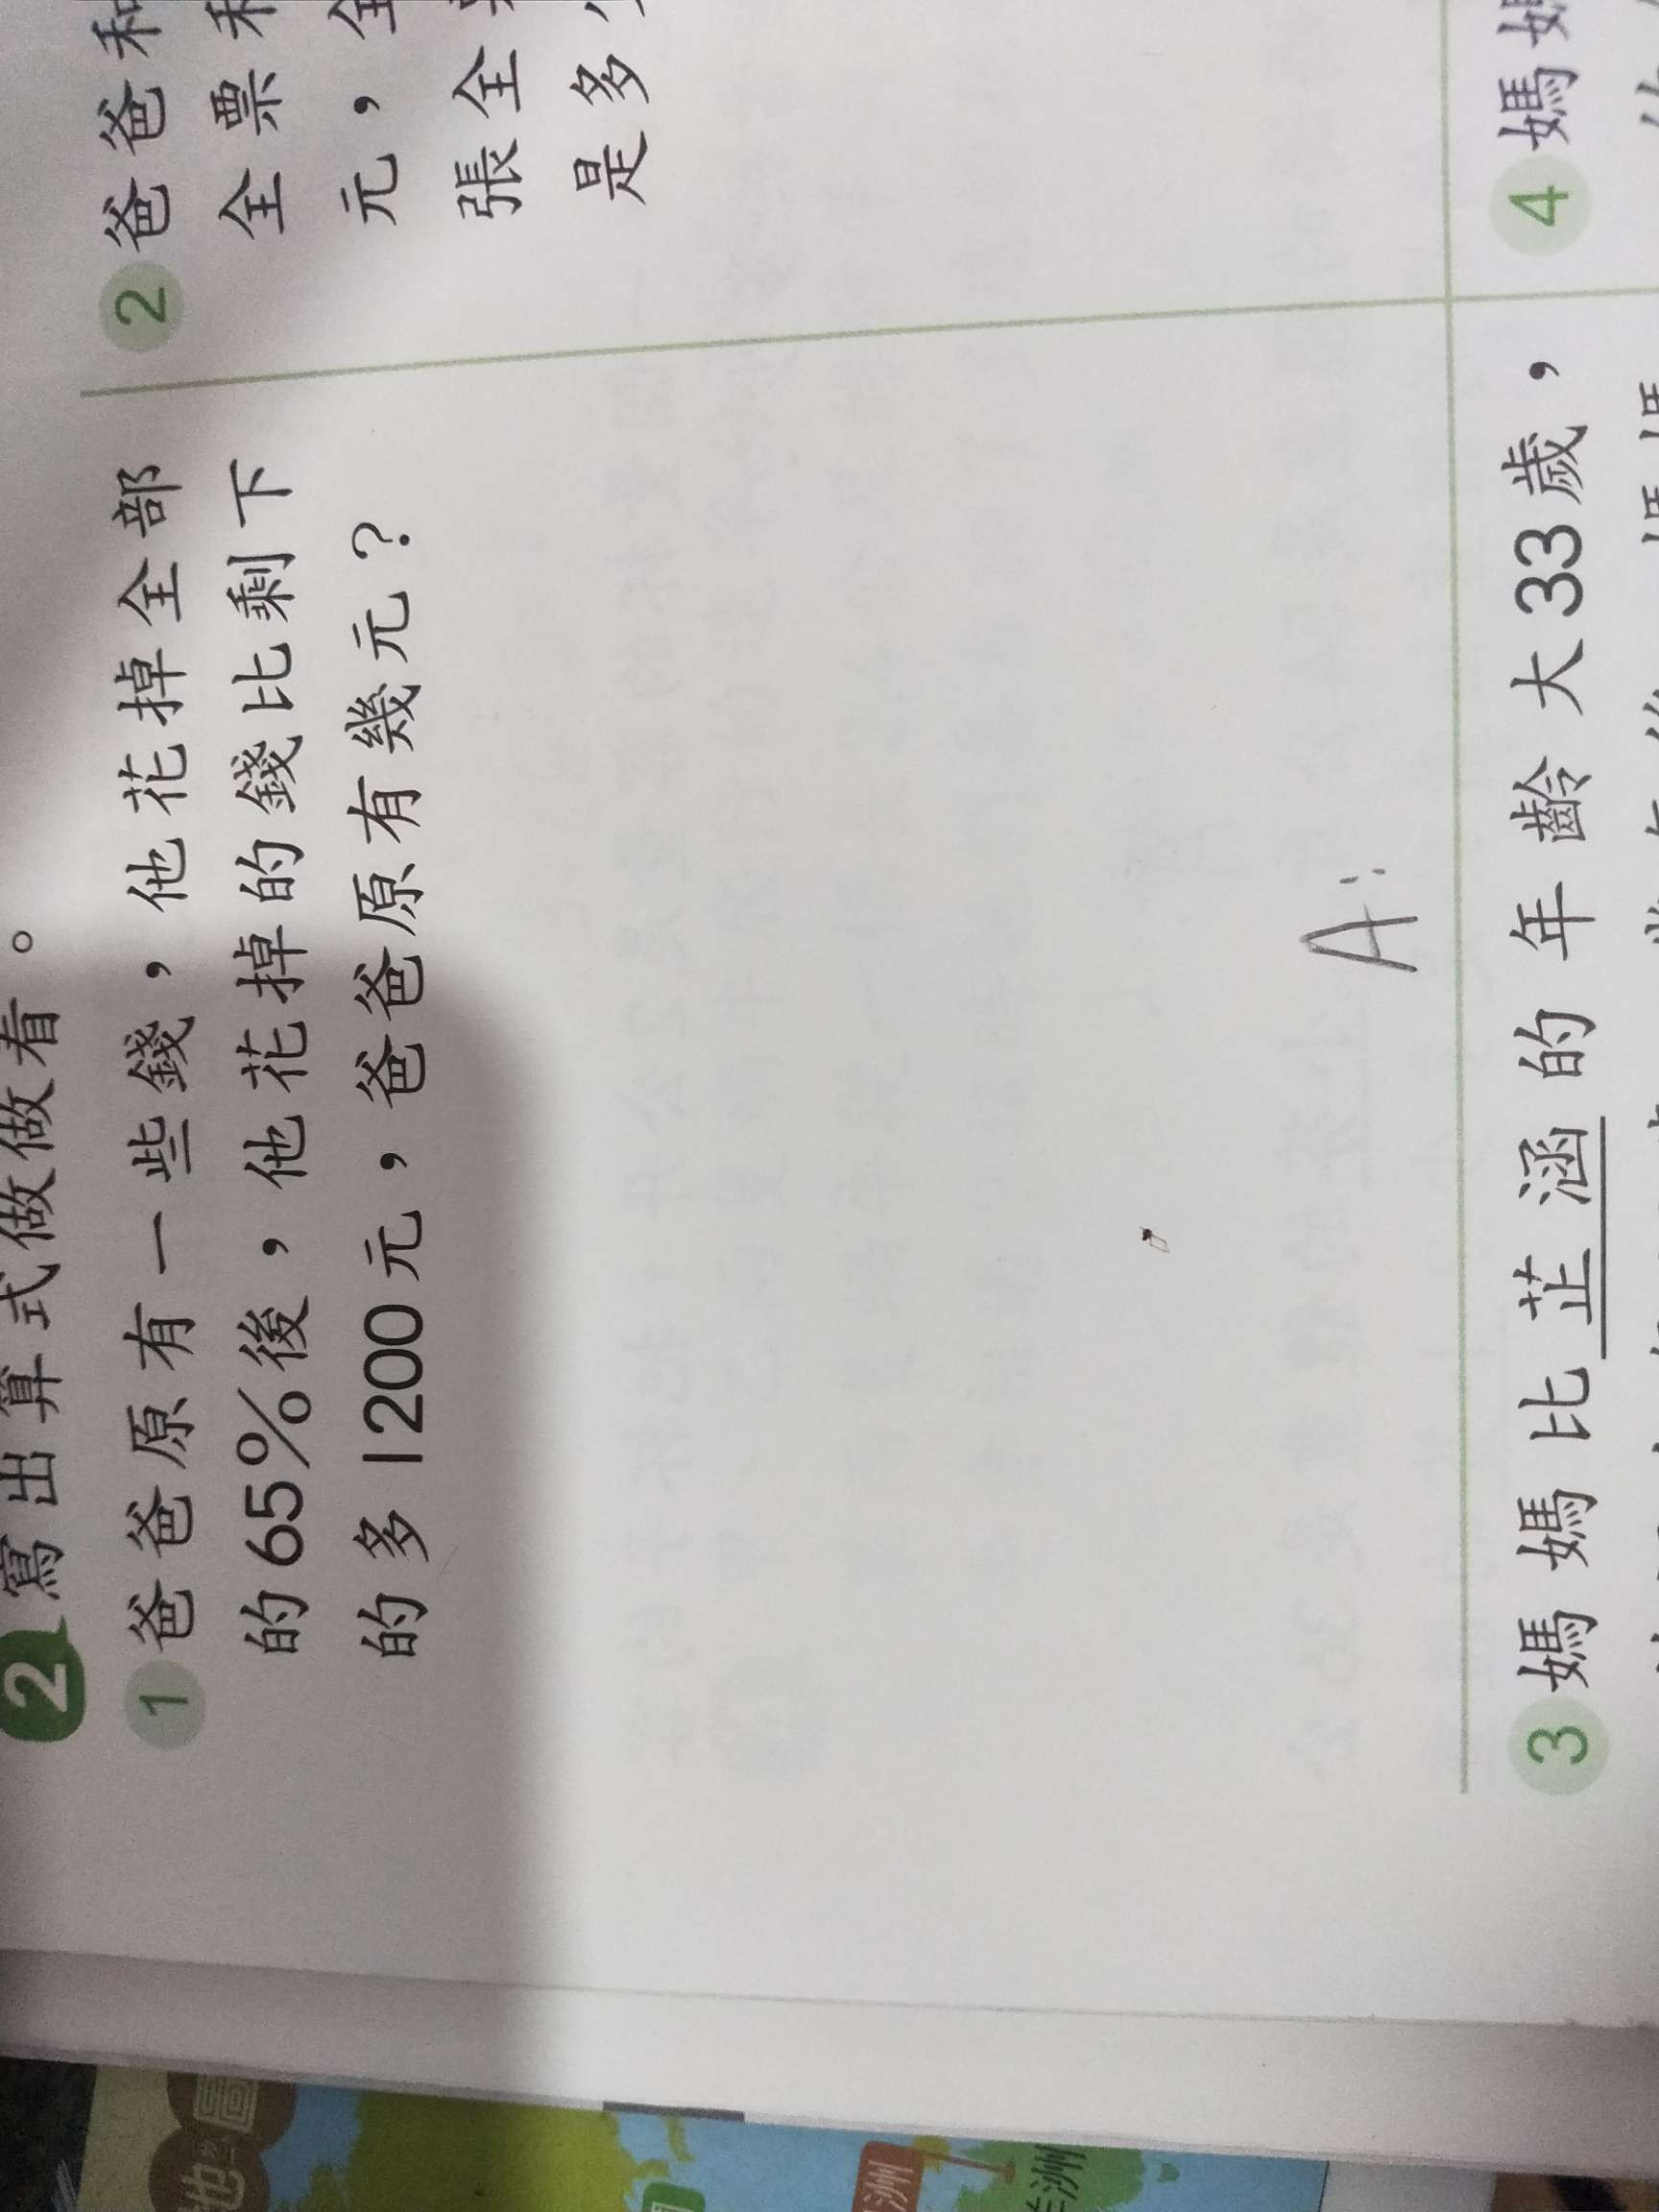 2 寫出算式做做看。
1 爸爸原有一些錢，他花掉全部
的65%後，他花掉的錢比剩下
的多1200元，爸爸原有幾元？
A：
2 爸爸和
全票
元，全
張全
是多
3 媽媽比芷涵的年齡大33歲，
4 媽媽
地圖
洲
洲